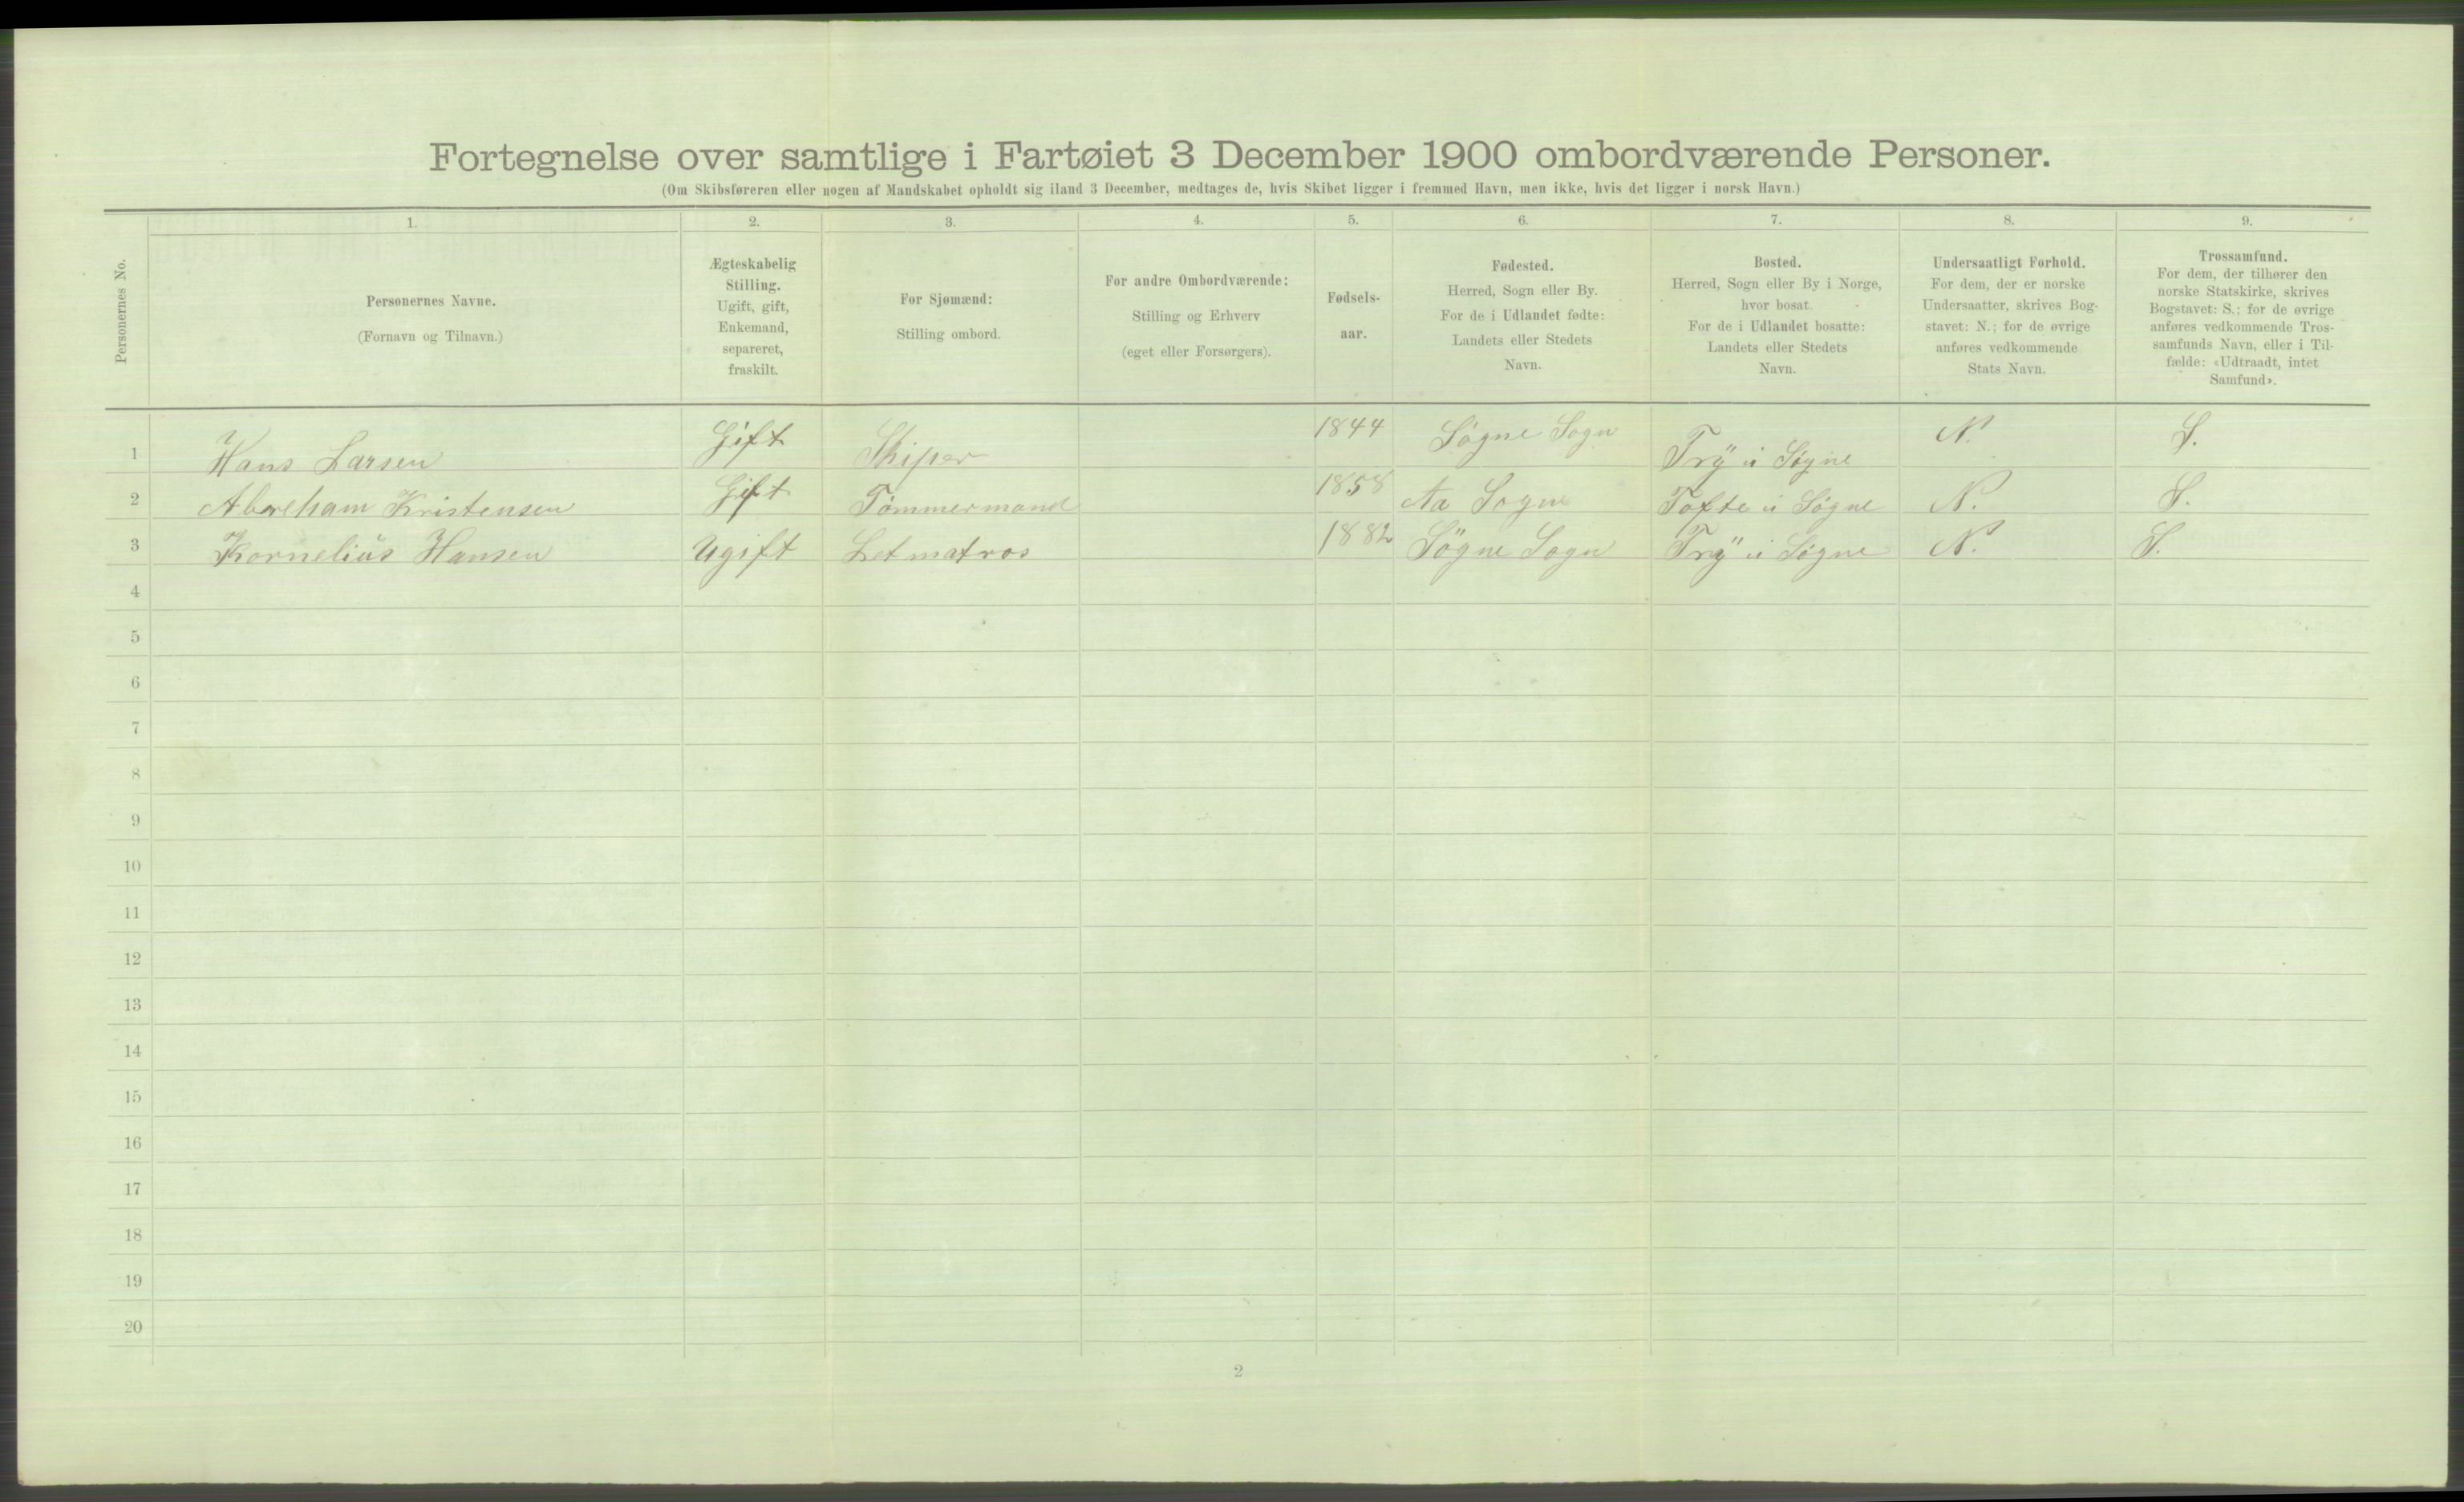 Fortegnelse over samtlige i Fartøiet 3 December 1900 ombordværende Personer.
(Om Skibsføreren eller nogen af Mandskabet opholdt sig iland 3 December, medtages de, hvis Skibet ligger i fremmed Havn, men ikke, hvis det ligger i norsk Havn.)
Personernes No.
1. 2. 3. 4. 5. 6. 7. 8. 9.
Personernes Navne.
(Fornavn og Tilnavn.)
Ægteskabelig
Stilling.
Ugift, gift,
Enkemand,
separeret,
fraskilt.
For Sjømænd:
Stilling ombord.
For andre Ombordværende:
Stilling og Erhverv
(eget eller Forsørgers).
Fødsels-
aar.
Fødested.
Herred, Sogn eller By.
For de i Udlandet fødte:
Landets eller Stedets
Navn.
Bosted.
Herred, Sogn eller By i Norge,
hvor bosat.
For de i Udlandet bosatte:
Landets eller Stedets
Navn.
Undersaatligt Forhold.
For dem, der er norske
Undersaatter, skrives Bog-
stavet: N.; for de øvrige
anføres vedkommende
Stats Navn.
Trossamfund.
For dem, der tilhører den
norske Statskirke, skrives
Bogstavet: S.; for de øvrige
anføres vedkommende Tros-
samfunds Navn, eller i Til-
fælde: «Udtraadt, intet
Samfund».
1 Hans Larsen Gift Skiper 1844 Søgne Sogn Trÿ i Søgne N. S.
2 Abreham Kristensen Gift Tømmermand 1858 Aa Sogn Tofte i Søgne N. S.
3 Kornelius Hansen Ugift Letmatros 1882 Sögne Sogn Trÿ i Søgne N. S.
4
5
6
7
8
9
10
11
12
13
14
15
16
17
18
19
20
2